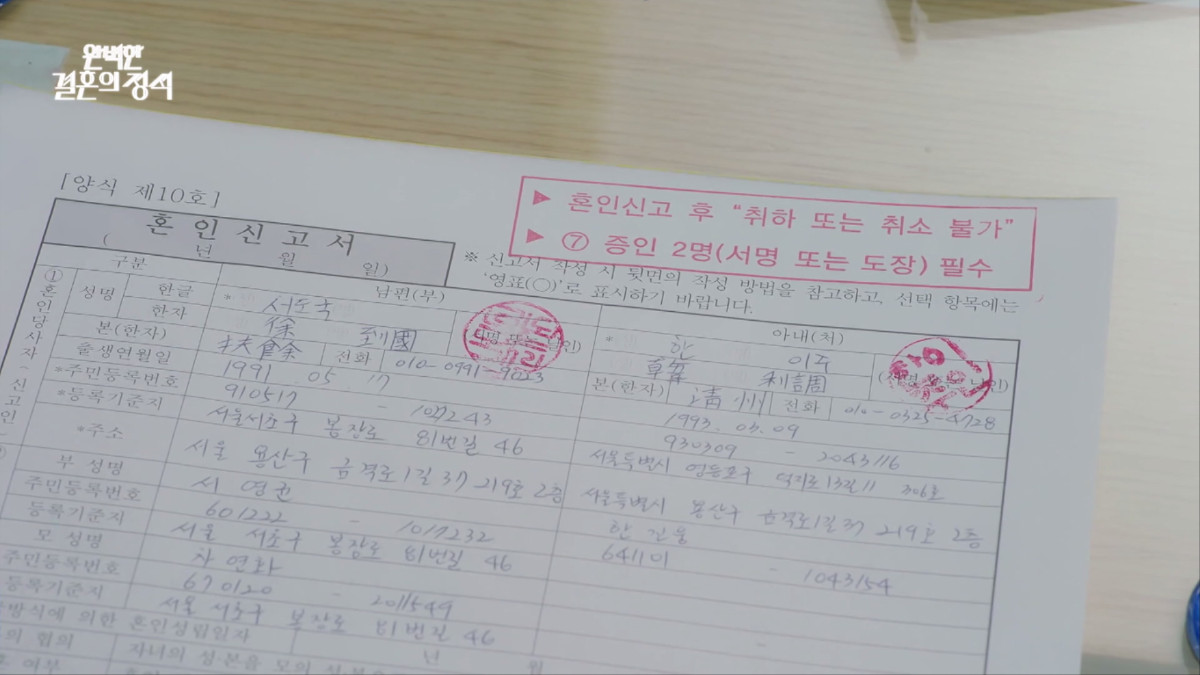 완벽한
결혼의 정석
[양식 제10호]
혼 인 신 고 서
( 년 월 일)
▶ 혼인신고 후 “취하 또는 취소 불가”
▶ ⑦ 증인 2명(서명 또는 도장) 필수
※ 신고서 작성 시 뒷면의 작성 방법을 참고하고, 선택 항목에는
‘영표(○)’로 표시하기 바랍니다.
구분 남편(부) 아내(처)
① 혼인당사자 신고인
성명 한글 * 서도국 * 한 이주
한자 徐 到國
본(한자) 扶餘 전화 본(한자) 淸州 전화 010-0325-4728
출생연월일 1991 05 17 1993. 03. 09
*주민등록번호 910517 - 930309 - 2043116
*등록기준지 서울서초구 봉장로 81번길 46 서울특별시 영등포구 306호
*주소 서울 용산구 금격로1길 37 219호 2층 서울특별시 용산구 금격로1길 37 219호 2층
부 성명 서 영균 한 진웅
주민등록번호 601222 - 1017232 641101 - 1043154
등록기준지 서울 서초구 봉장로 81번길 46
모 성명 차 연화
주민등록번호 670120 - 2011549 -
등록기준지 서울 서초구 봉장로 81번길 46
방식에 의한 혼인성립일자 년 월
의 협의 자녀의 성·본을 모의 성·본
여부